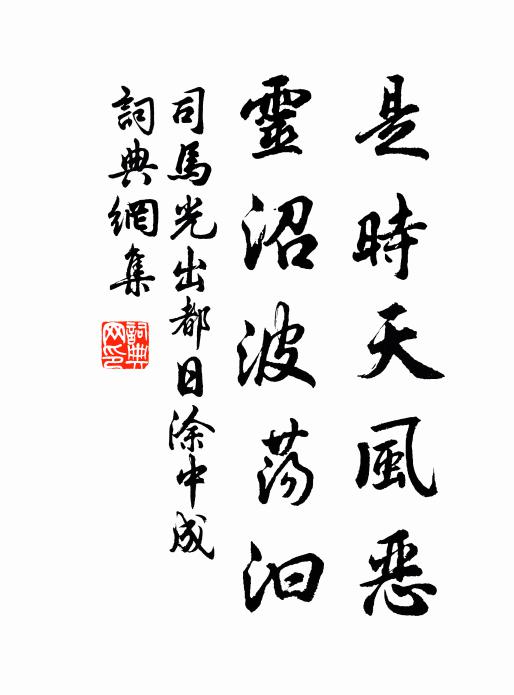 是時天風惡
靈沼波蕩汩
司馬光出都日涂中成
詞典網集
詞典
网印